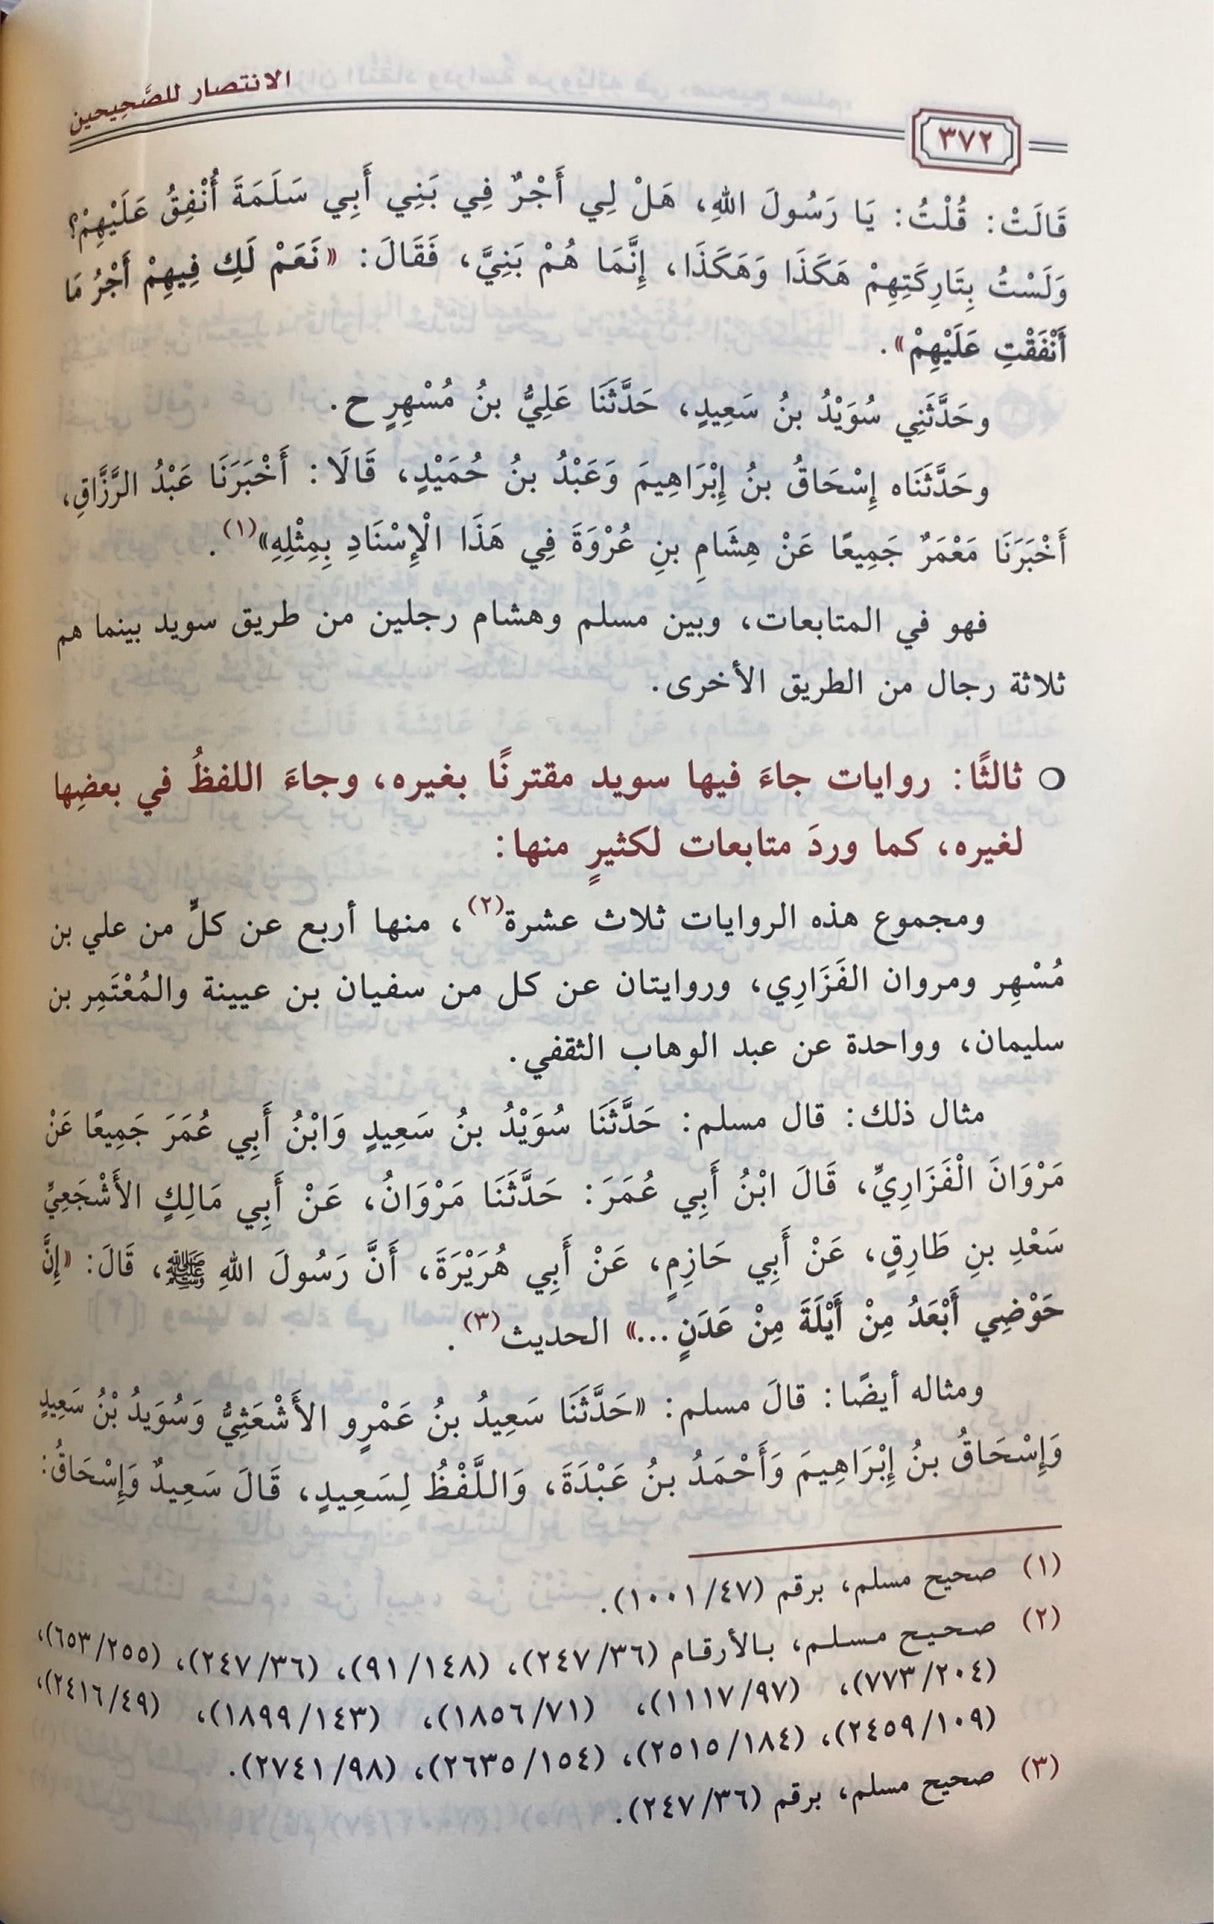 الانتصار للصَّحِيحين
٣٧٢
قَالَتْ: قُلْتُ: يَا رَسُولَ اللهِ، هَلْ لِي أَجْرٌ فِي بَنِي أَبِي سَلَمَةَ أُنْفِقُ عَلَيْهِمْ؟
وَلَسْتُ بِتَارِكَتِهِمْ هَكَذَا وَهَكَذَا، إِنَّمَا هُمْ بَنِيَّ، فَقَالَ: «نَعَمْ لَكِ فِيهِمْ أَجْرُ مَا
أَنْفَقْتِ عَلَيْهِمْ».
وحَدَّثَنِي سُوَيْدُ بنُ سَعِيدٍ، حَدَّثَنَا عَلِيُّ بنُ مُسْهِرٍ ح.
وحَدَّثَنَاه إِسْحَاقُ بنُ إِبْرَاهِيمَ وَعَبْدُ بنُ حُمَيْدٍ، قَالَا: أَخْبَرَنَا عَبْدُ الرَّزَّاقِ،
أَخْبَرَنَا مَعْمَرٌ جَمِيعًا عَنْ هِشَامِ بنِ عُرْوَةَ فِي هَذَا الْإِسْنَادِ بِمِثْلِهِ»(١).
فهو في المتابعات، وبين مسلم وهشام رجلين من طريق سويد بينما هم
ثلاثة رجال من الطريق الأخرى.
○ ثالثًا: روايات جاءَ فيها سويد مقترنًا بغيره، وجاءَ اللفظُ في بعضِها
لغيره، كما وردَ متابعات لكثيرٍ منها:
ومجموع هذه الروايات ثلاث عشرة(٢)، منها أربع عن كلٍّ من علي بن
مُسْهِر ومروان الفَزَارِي، وروايتان عن كل من سفيان بن عيينة والمُعْتَمِر بن
سليمان، وواحدة عن عبد الوهاب الثقفي.
مثال ذلك: قال مسلم: حَدَّثَنَا سُوَيْدُ بنُ سَعِيدٍ وَابْنُ أَبِي عُمَرَ جَمِيعًا عَنْ
مَرْوَانَ الْفَزَارِيِّ، قَالَ ابْنُ أَبِي عُمَرَ: حَدَّثَنَا مَرْوَانُ، عَنْ أَبِي مَالِكٍ الأَشْجَعِيِّ
سَعْدِ بنِ طَارِقٍ، عَنْ أَبِي حَازِمٍ، عَنْ أَبِي هُرَيْرَةَ، أَنَّ رَسُولَ اللهِ ﷺ، قَالَ: «إِنَّ
حَوْضِي أَبْعَدُ مِنْ أَيْلَةَ مِنْ عَدَنٍ ...» الحديث(٣).
ومثاله أيضًا: قالَ مسلم: «حَدَّثَنَا سَعِيدُ بنُ عَمْرٍو الأَشْعَثِيُّ وَسُوَيدُ بْنُ سَعِيدٍ
وَإِسْحَاقُ بنُ إِبْرَاهِيمَ وَأَحْمَدُ بنُ عَبْدَةَ، وَاللَّفْظُ لِسَعِيدٍ، قَالَ سَعِيدٌ وَإِسْحَاقُ:
(١) صحيح مسلم، برقم (١٠٠١/٤٧).
(٢) صحيح مسلم، بالأرقام (٢٤٧/٣٦)، (٩١/١٤٨)، (٢٤٧/٣٦)، (٦٥٣/٢٥٥)،
(٧٧٣/٢٠٤)، (١١١٧/٩٧)، (١٨٥٦/٧١)، (١٨٩٩/١٤٣)، (٢٤١٦/٤٩)،
(٢٤٥٩/١٠٩)، (٢٥١٥/١٨٤)، (٢٦٣٥/١٥٤)، (٢٧٤١/٩٨).
(٣) صحيح مسلم، برقم (٢٤٧/٣٦).